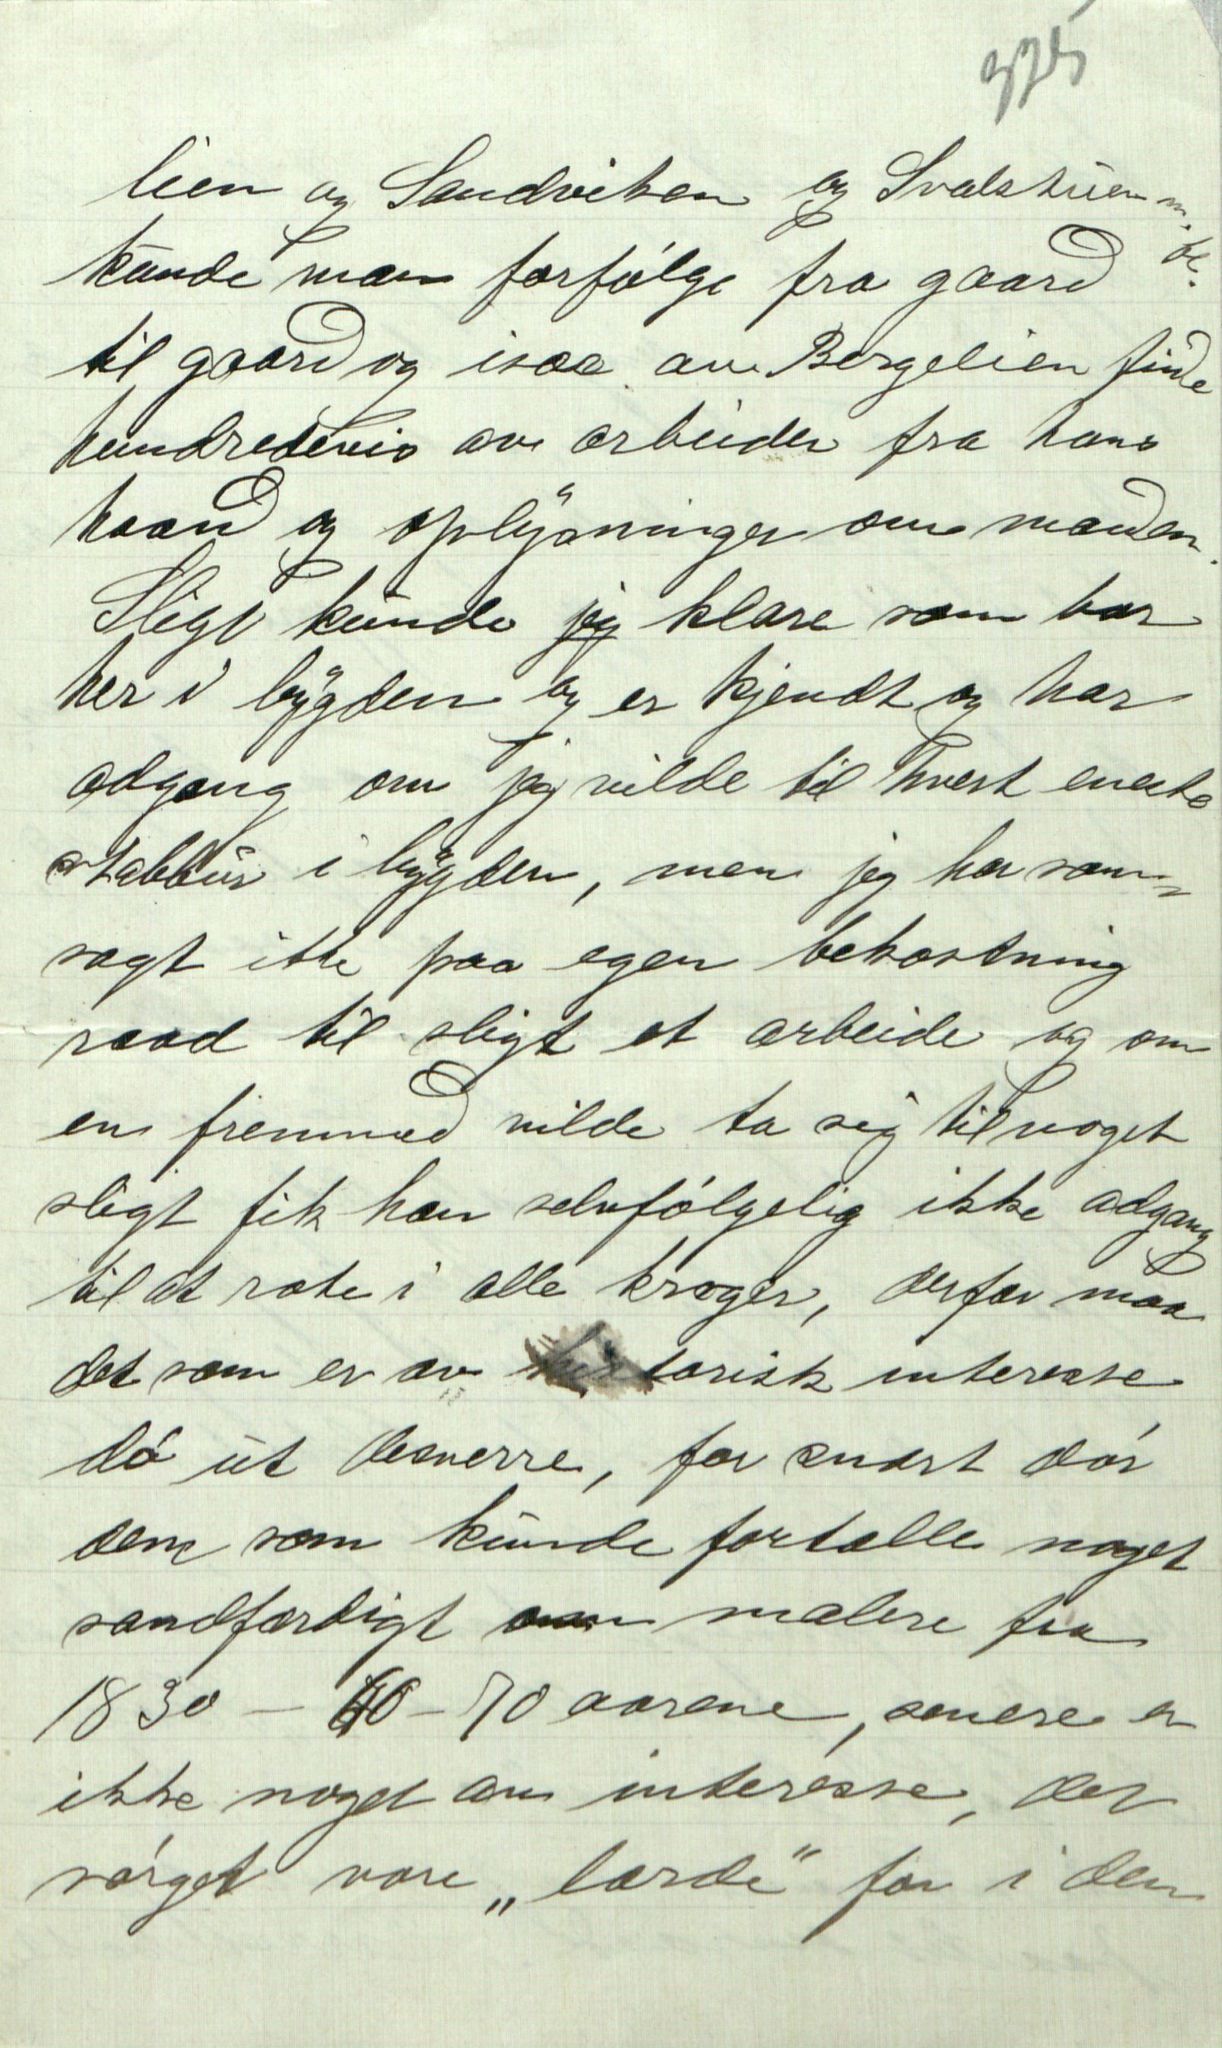 lien og Sandviken og Svalstuen m. fl.
kunde man forfølge fra gaard
til gaard og isaa av Bergelien finde
hundredevis av arbeider fra hans
haand og oplysninger om manden.
Sligt kunde jeg klare som bor
her i bygden og er kjendt og har
adgang om jeg vilde til hvert eneste
stabbur i bygden, men jeg har som
sagt ikke paa egen bekostning
raad til sligt et arbeide og om
en fremmed vilde ta sig til noget
sligt fik han selvfølgelig ikke adgang
til at rote i alle kroger, derfor maa
det som er av historisk interesse
dø ut desverre, for snart dør
dem som kunde fortælle noget
sandfærdigt om malere fra
1830 – 40 – 70 aarene, senere er
ikke noget av interesse, det
sørget vore „lærde" for i den